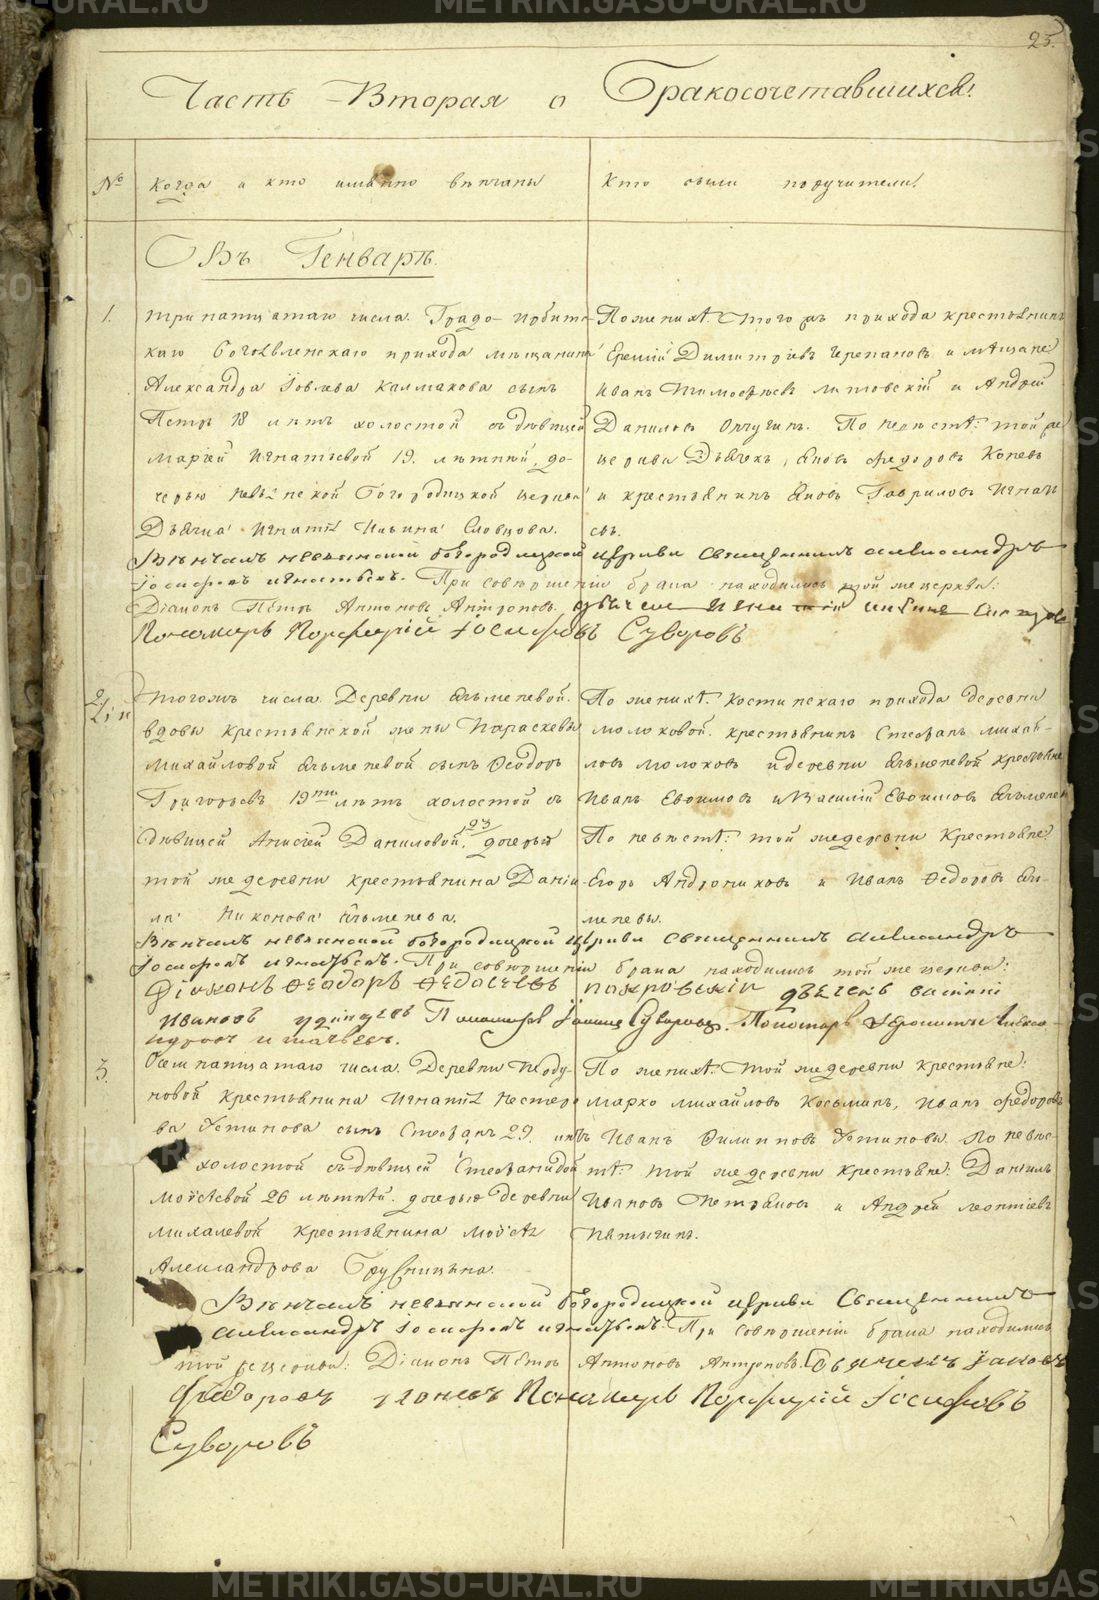 METRIKI.GASO-URAL.RU
25.
Часть Вторая о Бракосочетавшихся.
№
Когда и кто именно венчаны
Кто были поручители.
Въ Генварѣ.
1.
тринатцатаго числа. Градо-Ирбит-
скаго Богоявленскаго прихода мѣщанина
Александра Іовлева Калмакова сынъ
Петръ 18 лѣтъ холостой съ дѣвицей
Марьей Игнатьевой 19. лѣтней, до-
черью невьянской Богородицкой церкви
Дьячка Игнатія Ильина Словцова.
По женихѣ. Того жъ прихода крестьянинъ
Еремѣй Димитріевъ Черепановъ и мѣщане
Иванъ Тимофѣевъ Литовскій и Андрей
Даниловъ Опучинъ. По невѣстѣ: той же
церкви Дьячекъ, Яковъ Федоровъ Коневъ
и крестьянинъ Яковъ Гавриловъ Игнать
евъ.
Вѣнчалъ невьянской Богородицкой церкви Священникъ Александръ
Іосифовъ Игнатьевъ. При совершеніи брака находились той же церкви:
Діаконъ Пётръ Антоновъ Антроповъ.
Пономарь Порфирій Іосифовъ Суворовъ
2.
Тогожъ числа Деревни Ячменевой.
вдовы крестьянской жены Параскевы
Михайловой Ячменевой сынъ Ѳеодоръ
Григорьевъ 19ти лѣтъ холостой съ
дѣвицей Анисіей Даниловой, 23 дочерью
той же деревни крестьянина Дані-
ла Никонова Ячменева.
По женихѣ. Костинскаго прихода деревни
Молоковой. крестьянинъ Стефанъ Михай-
ловъ Молоковъ и деревни Ячменевой крестьяне
Иванъ Евѳимовъ и Василій Евѳимовъ Ячменевы
По невѣстѣ: той же деревни Крестьяне
Егоръ Андрониковъ и Иванъ Ѳедоровъ Яч-
меневы.
Вѣнчалъ невьянской Богородицкой церкви Священникъ Александръ
Іосифовъ Игнатьевъ. При совершеніи брака находились той же церкви:
Діаконъ Ѳеодоръ Ѳедосеевъ Покровскій дьячекъ Василій
Ивановъ Удинцевъ Пономарь
3.
числа. Деревни
новой крестьянина Игнатія Нестеро
ва Устинова сынъ Стефанъ 29. лѣтъ
холостой съ дѣвицей Стефанидой
Моисѣевой 26 лѣтней. дочерью деревни
Михалевой крестьянина Моисѣя
Александрова Брусницына.
По женихѣ. Той же деревни крестьяне:
Марко Михайловъ Косьминъ, Иванъ Федоровъ
Иванъ Филипповъ Устиновы. По невѣс-
тѣ: той же деревни крестьяне: Даніилъ
Ивановъ и Андрей Леонтіевъ
Вѣнчалъ невьянской Богородицкой церкви Священникъ
Александръ Іосифовъ Игнатьевъ. При совершеніи брака находились
той же церкви: Діаконъ Пётръ Антоновъ Антроповъ. Дьячекъ Яковъ
Федоровъ Коневъ Пономарь Порфирій Іосифовъ
Суворовъ
METRIKI.GASO-URAL.RU